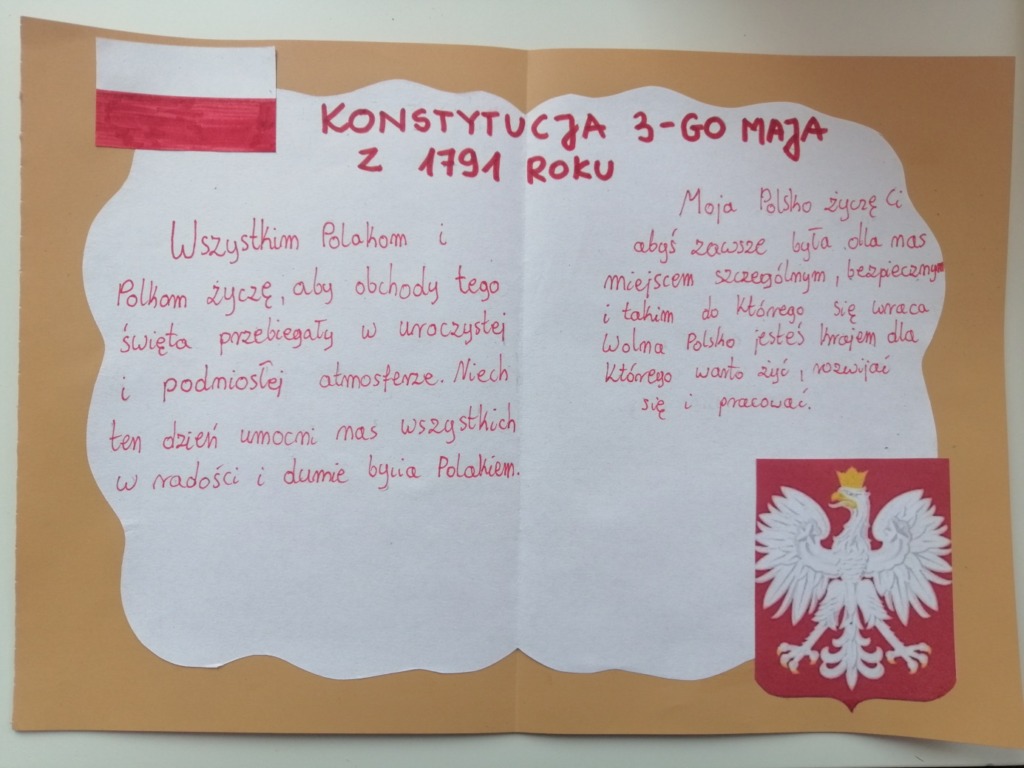 KONSTYTUCJA 3-GO MAJA
Z 1791 ROKU
Wszystkim Polakom i
Polkom życzę, aby obchody tego
święta przebiegały w uroczystej
i podniosłej atmosferze. Niech
ten dzień umocni nas wszystkich
w radości i dumie bycia Polakiem.
Moja Polsko życzę Ci
abyś zawsze była dla nas
miejscem szczególnym, bezpiecznym
i takim do którego się wraca
Wolna Polsko jesteś krajem dla
którego warto żyć, rozwijać
się i pracować.